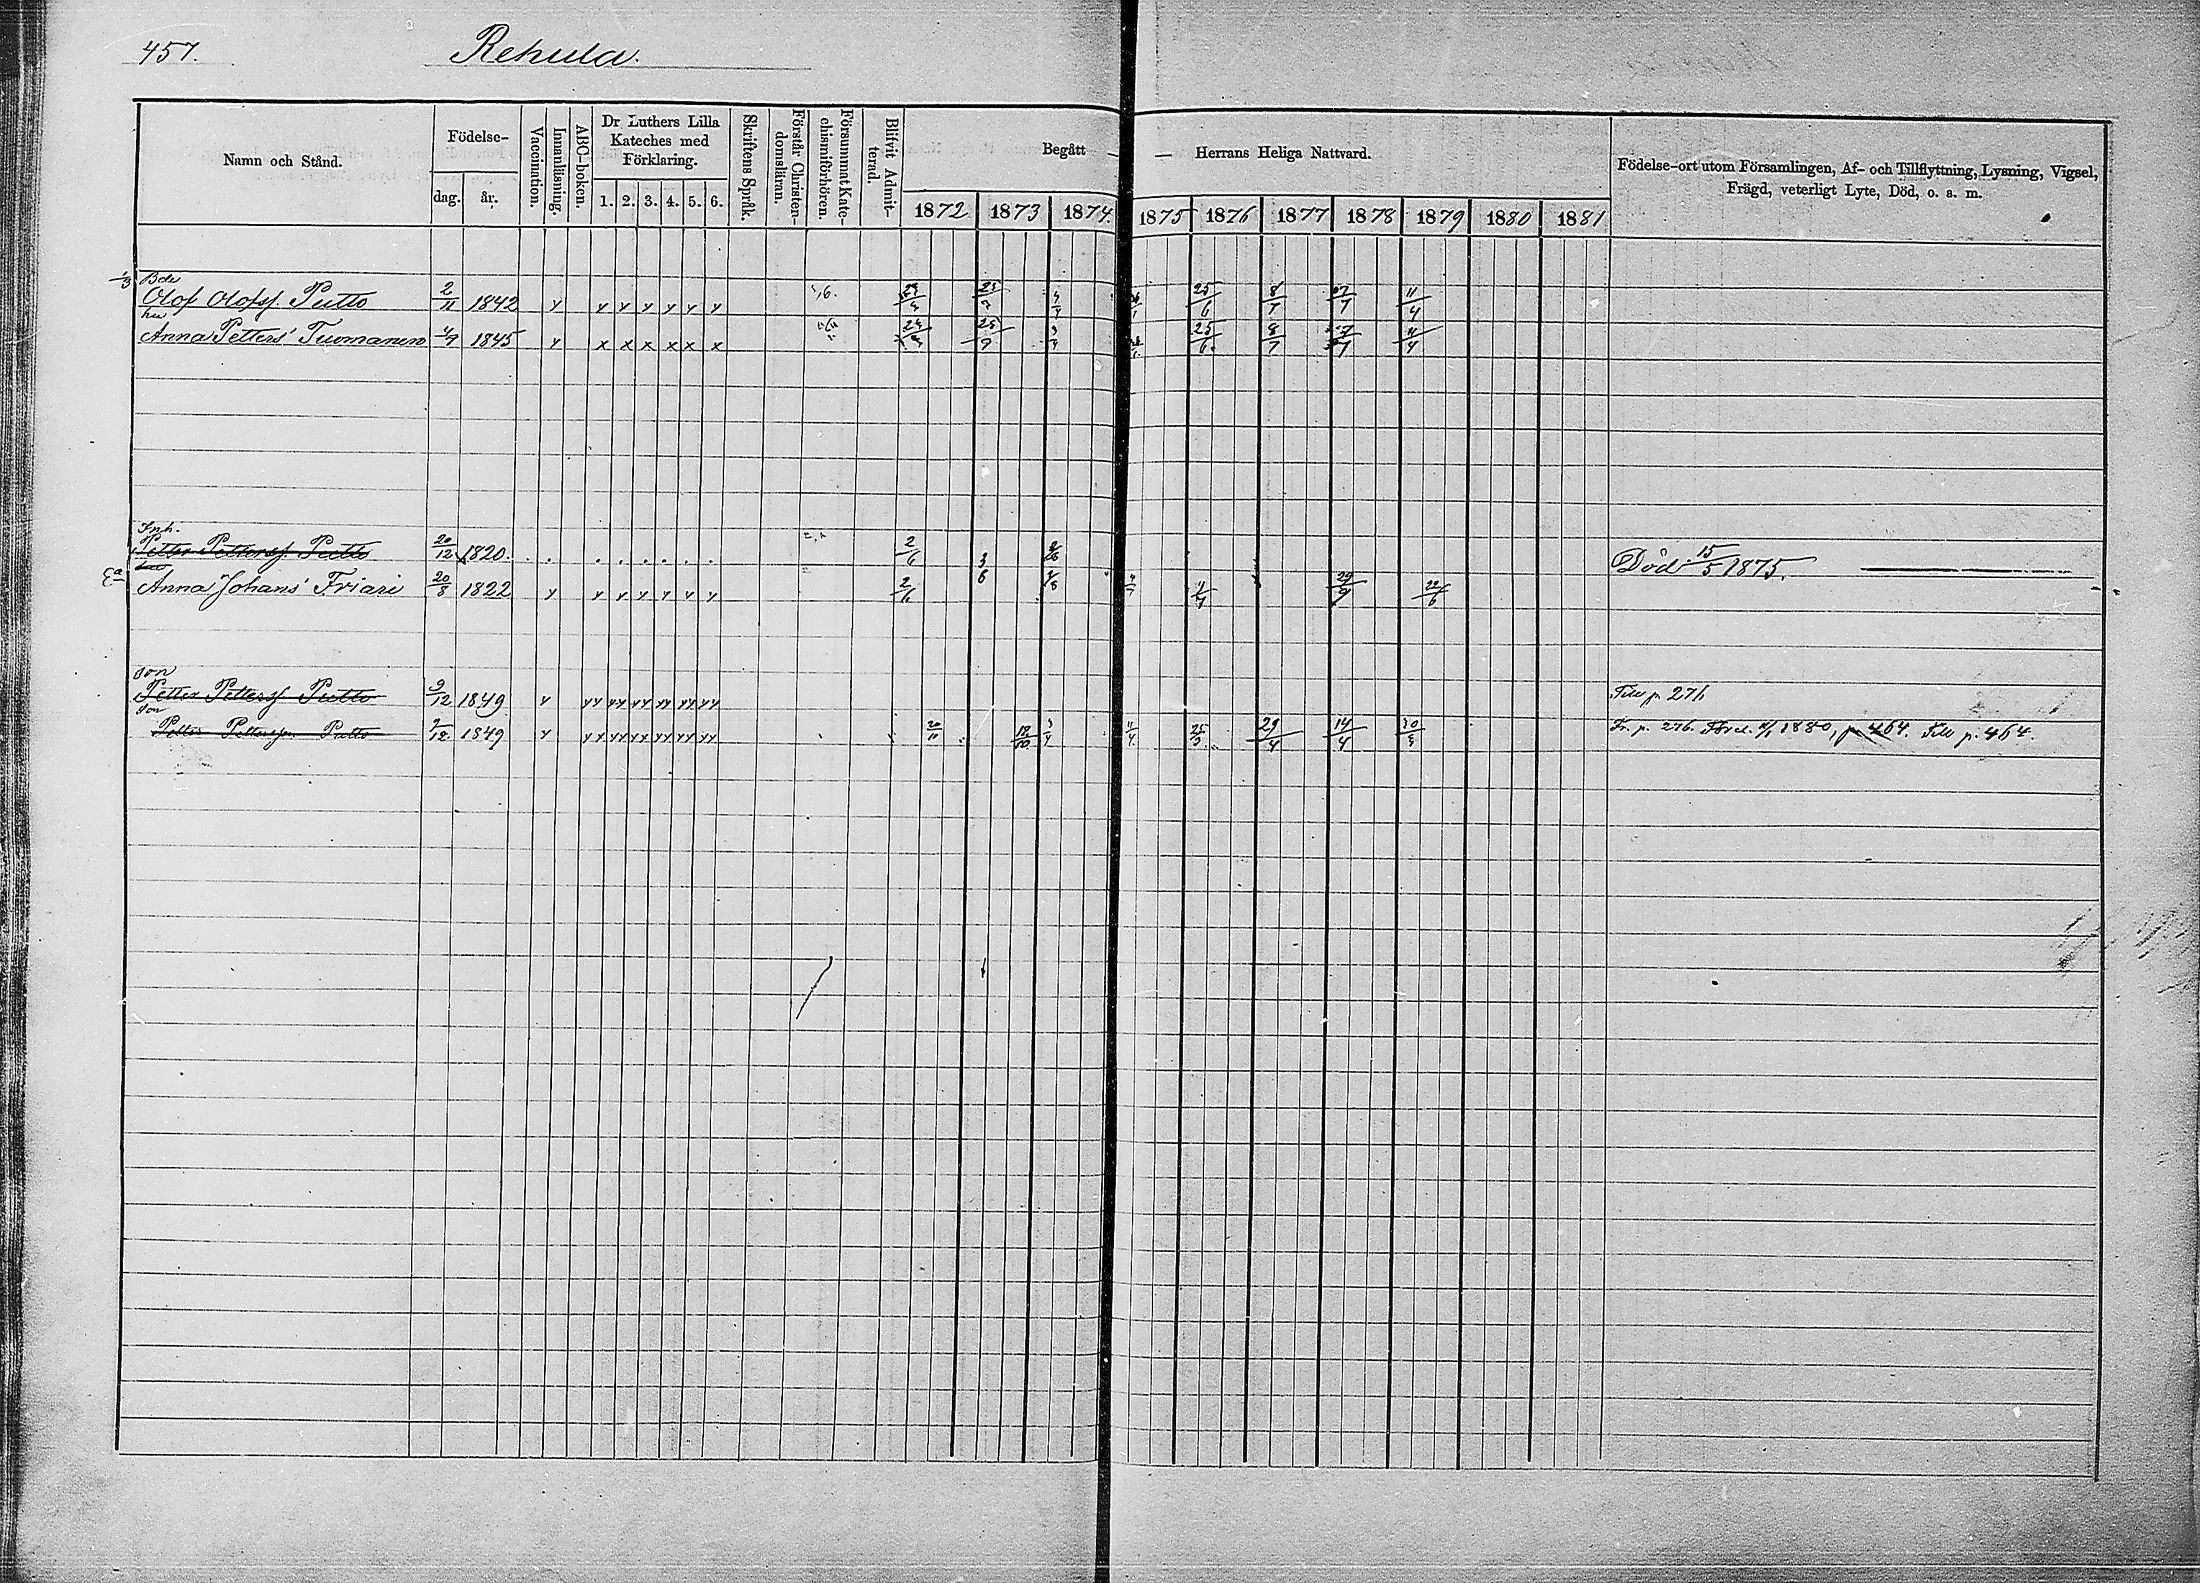 457.
Rehula.
Namn och Stånd.
Födelse-
dag.
år.
Vaccination.
Innanläsning.
ABC-boken.
Dr Luthers Lilla
Kateches med
Förklaring.
1. 2. 3. 4. 5. 6.
Skriftens Språk.
Förstår Christen-
domsläran.
Försummat Kate-
chismiförhören.
Blifvit Admit-
terad.
Begått — — Herrans Heliga Nattvard.
1872 1873 1874 1875 1876 1877 1878 1879 1880 1881
Födelse-ort utom Församlingen, Af- och Tillflyttning, Lysning, Vigsel,
Frägd, veterligt Lyte, Död, o. s. m.
1/3 Bde
Olof Olofsf. Putto 2/11 1842 25/6 8/7 11/4
hu
Anna Petters' Tuomanen 4/9 1845 25/9 25/6 8/7 11/4
Inh.
Petter Pettersf. Putto 20/12 1820. 2/6 Död 15/5 1875.
hu
Ea Anna Johans' Friari 20/8 1822 2/6 29/9 22/6
son
Petter Pettersf. Putto 9/12 1849 Till p. 276
son
Petter Pettersson Putto 9/12 1849 20/11 18/10 11/4 25/3 29/4 14/4 Fr. p. 276. 1880, p. 464. Till p. 464.